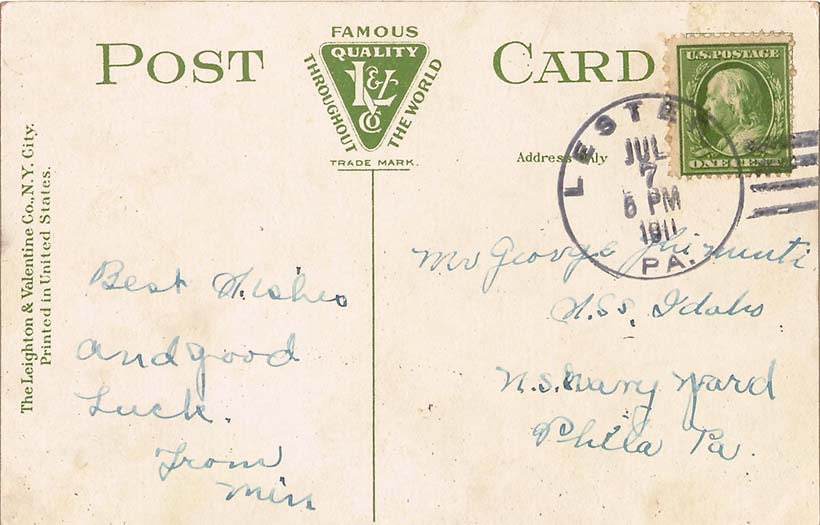 POST CARD
FAMOUS
QUALITY
THROUGHOUT THE WORLD
L&V Co
TRADE MARK.
U.S. POSTAGE
ONE CENT
Address Only
LESTER
JUL
7
6 PM
1911
PA.
The Leighton & Valentine Co., N.Y. City.
Printed in United States.
Best Wishes
and good
Luck.
From
Mr George
U.S.S. Idaho
U.S. Navy Yard
Phila Pa.